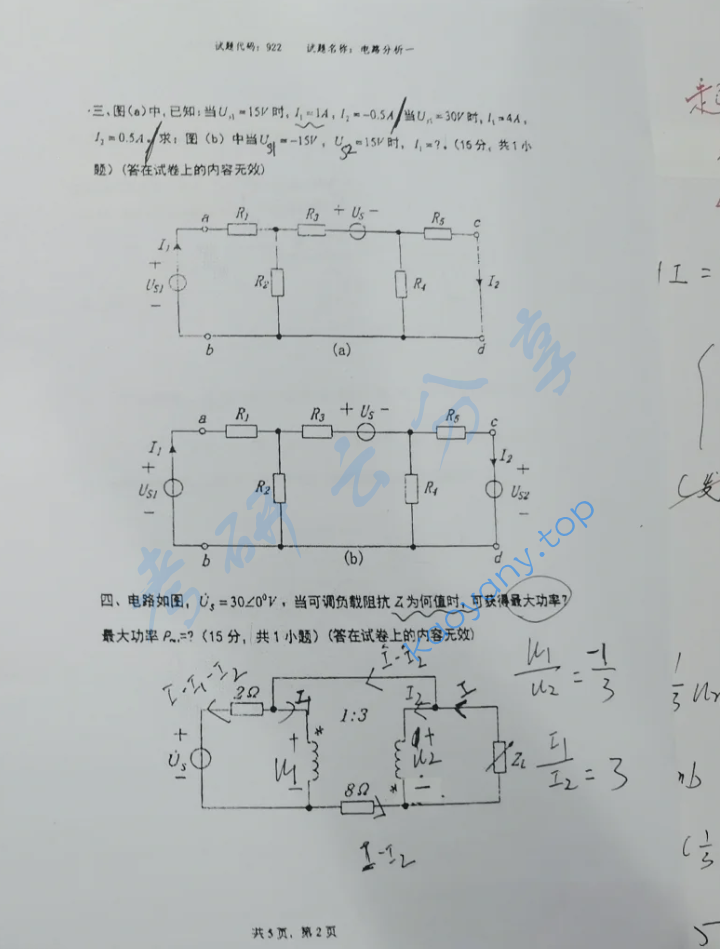 试题代码：922 试题名称：电路分析一
三、图(a)中，已知：当U_{s1}=15V时，I₁=1A，I₂=-0.5A/当U_{s1}=30V时，I₁=4A，
I₂=0.5A。求：图（b）中当U_{S1}=-15V，U_{S2}=15V时，I₁=?。（15分，共1小
题）（答在试卷上的内容无效）
a R₁ R₃ + U_S - R₅ c
I₁ + U_{S1} - R₂ R₄ I₂
b (a) d
a R₁ R₃ + U_S - R₅ c
I₁ + U_{S1} - R₂ R₄ I₂ + U_{S2} -
b (b) d
考研云分享
kaoyany.top
四、电路如图，U̇ₛ=30∠0⁰V，当可调负载阻抗Z为何值时，可获得最大功率？
最大功率Pₘ=？（15分，共1小题）（答在试卷上的内容无效）
İ-I₂
I-I₁-I₂ 2Ω I₁ 1:3 I₂ I
+ U̇ₛ - + U₁ - * + U₂ - * Z_L
8Ω
I-I₂
U₁/U₂=-1/3
I₁/I₂=3
I=
1/3 U₂
共5页，第2页